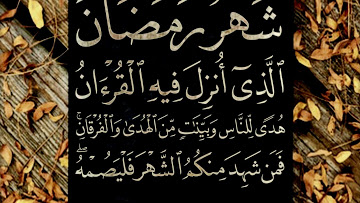 شَهْرُ رَمَضَانَ
ٱلَّذِىٓ أُنزِلَ فِيهِ ٱلْقُرْءَانُ
هُدًى لِّلنَّاسِ وَبَيِّنَٰتٍ مِّنَ ٱلْهُدَىٰ وَٱلْفُرْقَانِ ۚ
فَمَن شَهِدَ مِنكُمُ ٱلشَّهْرَ فَلْيَصُمْهُ ۖ